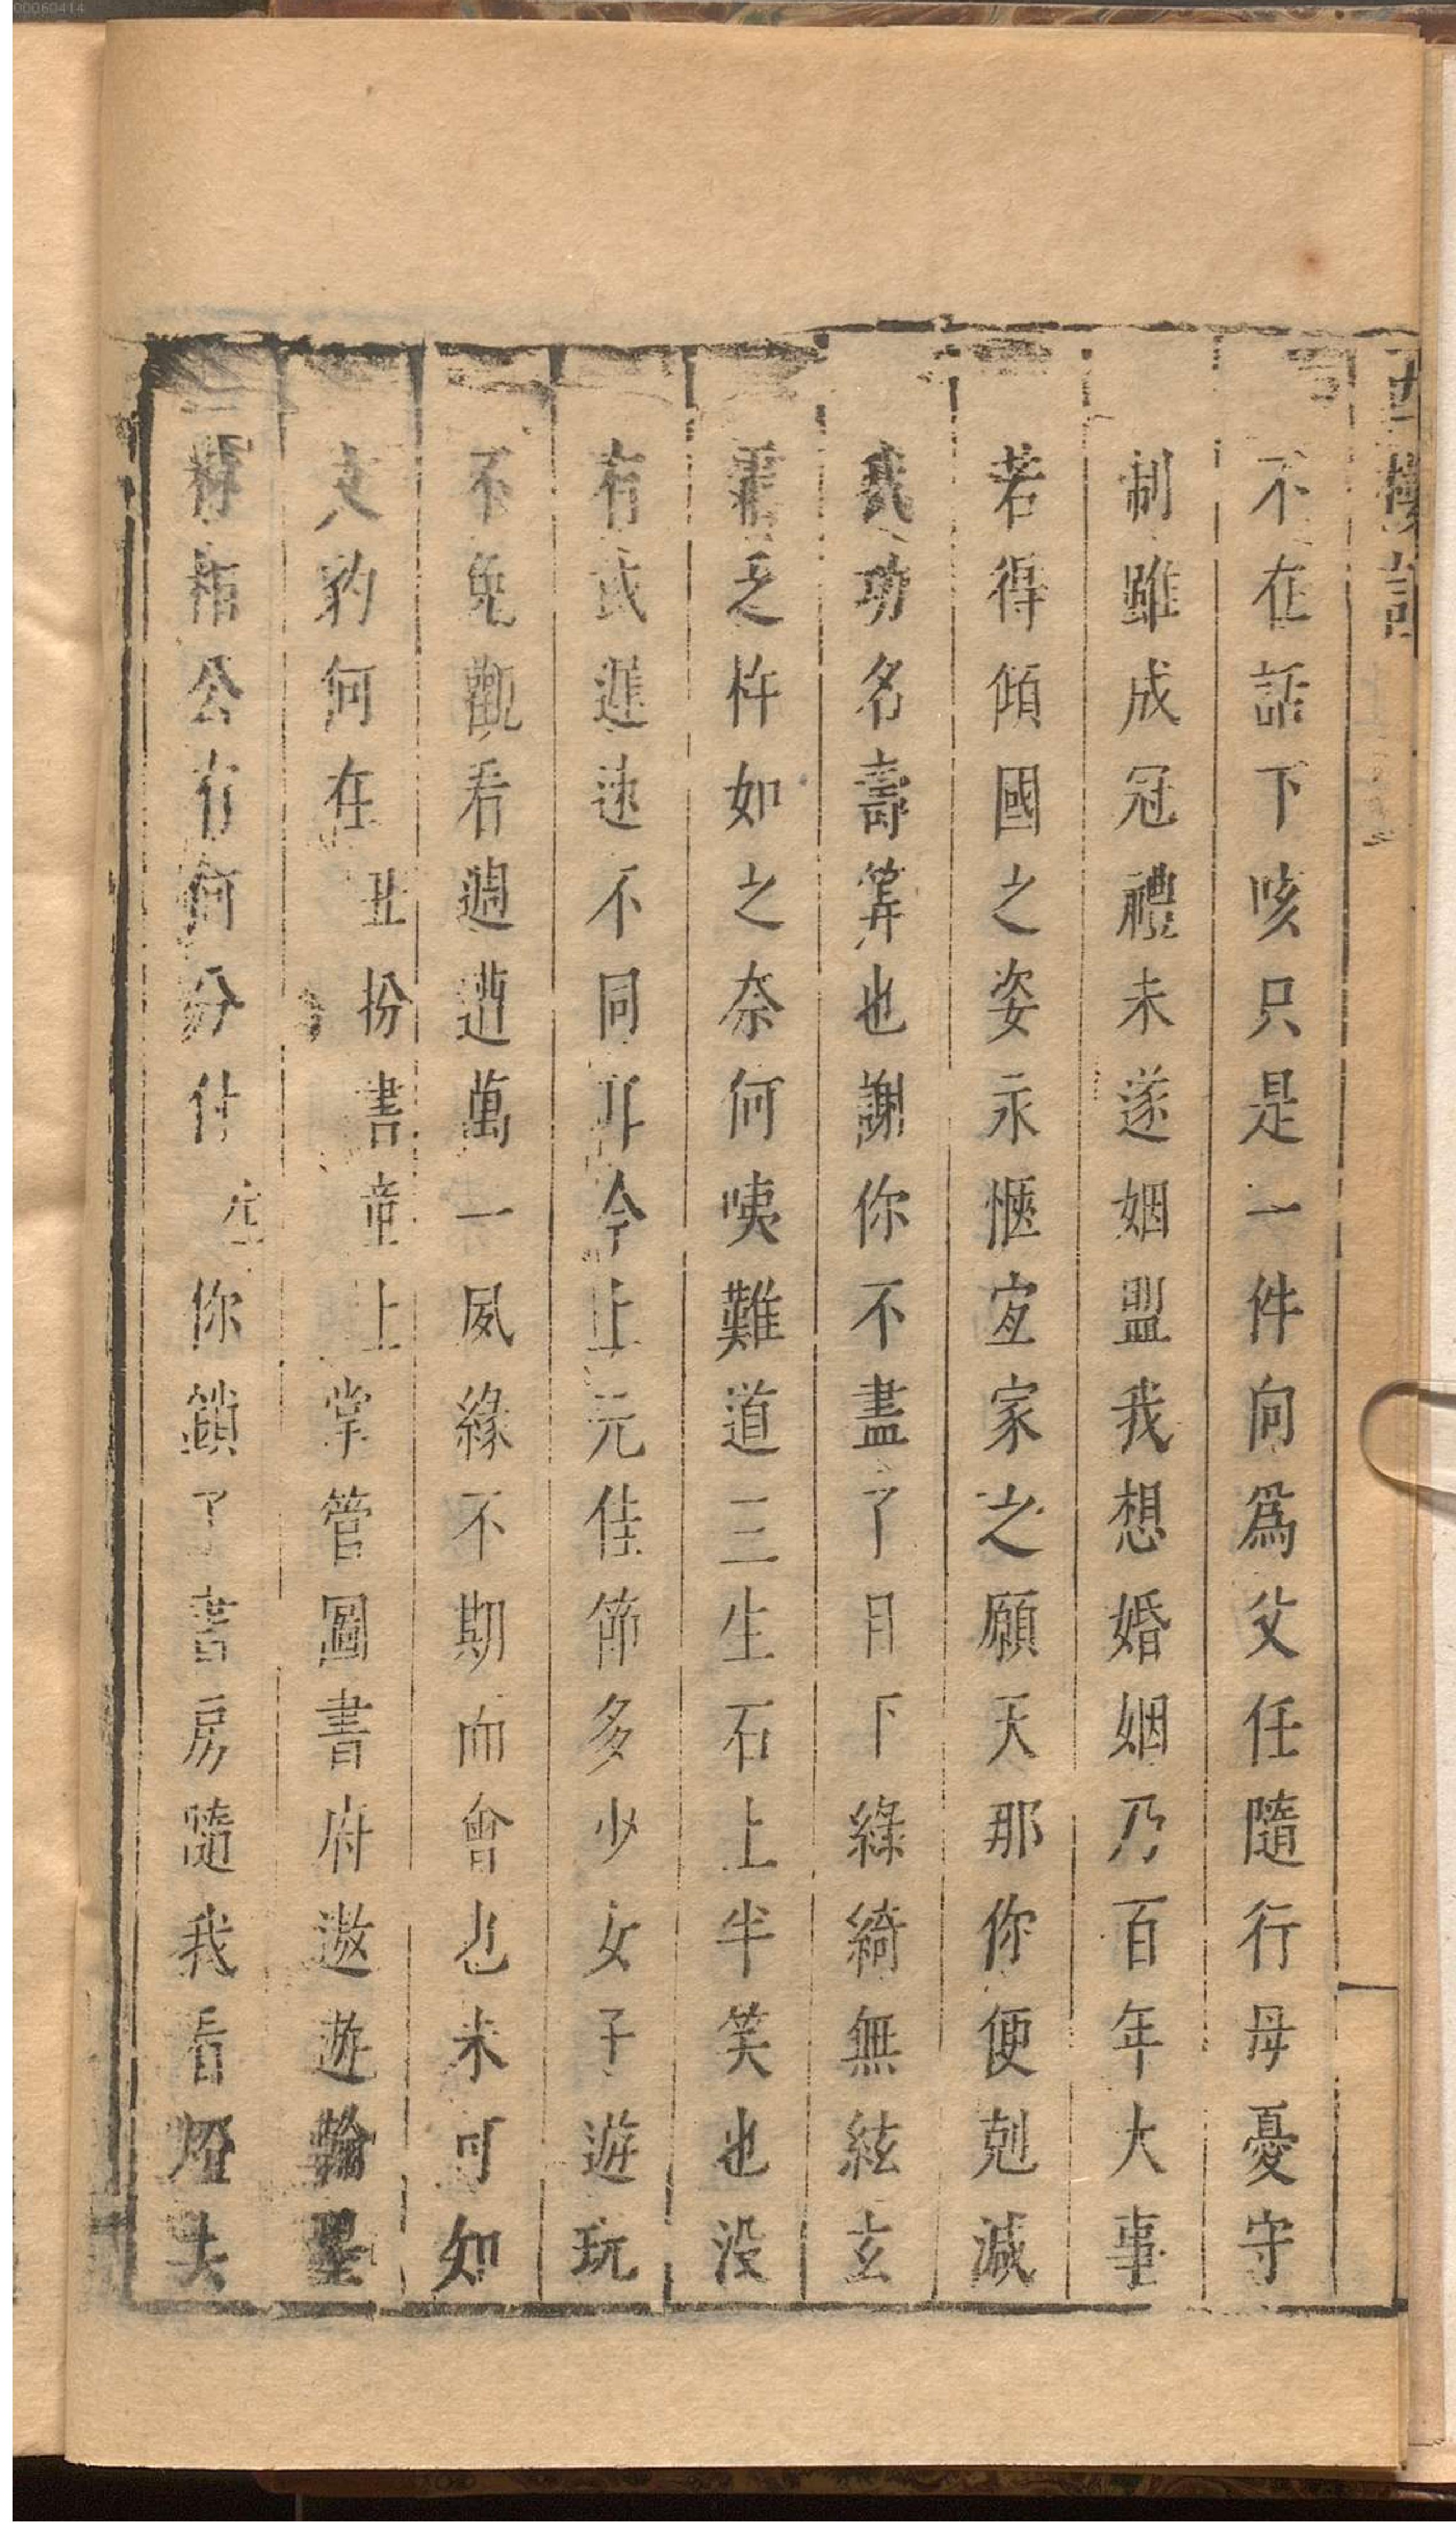 00060414
樓記
不在話下咳只是一件向爲父任隨行母憂守
制雖成冠禮未遂姻盟我想婚姻乃百年大事
若得傾國之姿永愜宜家之願天那你便剋減
我功名壽筭也謝你不盡了月下綠綺無絃玄
霜乏杵如之奈何咦難道三生石上半笑也没
有或遲速不同耳今上元佳節多少女子遊玩
不免觀看週遭萬一夙緣不期而會也未可知
文豹何在丑扮書童上掌管圖書府遨遊翰墨
林相公有何分付生你鎖了書房隨我看燈去